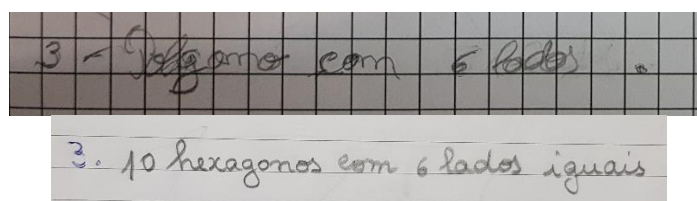 3 - Polígono com 6 lados.
3. 10 hexagonos com 6 lados iguais